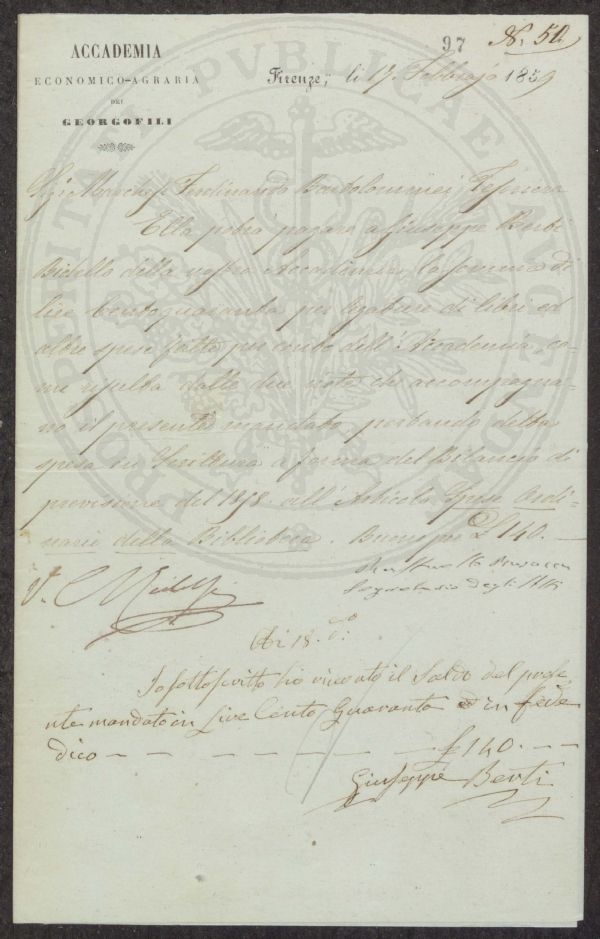 97 N. 50
ACCADEMIA
ECONOMICO-AGRARIA
DEI
GEORGOFILI
Firenze, li 17. Febbrajo 1859
PROSPERITATI PVBLICAE AVGENDAE
Sig. Marchese Ferdinando Bartolommei Tesoriere
Ella potrà pagare a Giuseppe Berti
Bidello della nostra Accademia la somma di
lire centoquaranta per legature di libri ed
altre spese fatte per conto dell'Accademia, co-
me resulta dalle due note che accompagna-
no il presente mandato portando detta
spesa in Scrittura a forma del Bilancio di
previsione del 1858 all'Articolo Spese Ordi-
narie della Biblioteca. Buono per £ 140. —
V. C Ridolfi
Segretario degli Atti
A dì 18. do:
Io sottoscritto ho ricevuto il Saldo del prese
nte mandato in Lire Cento Quaranta ed in fede
dico — — — — — — £ 140. — —
Giuseppe Berti